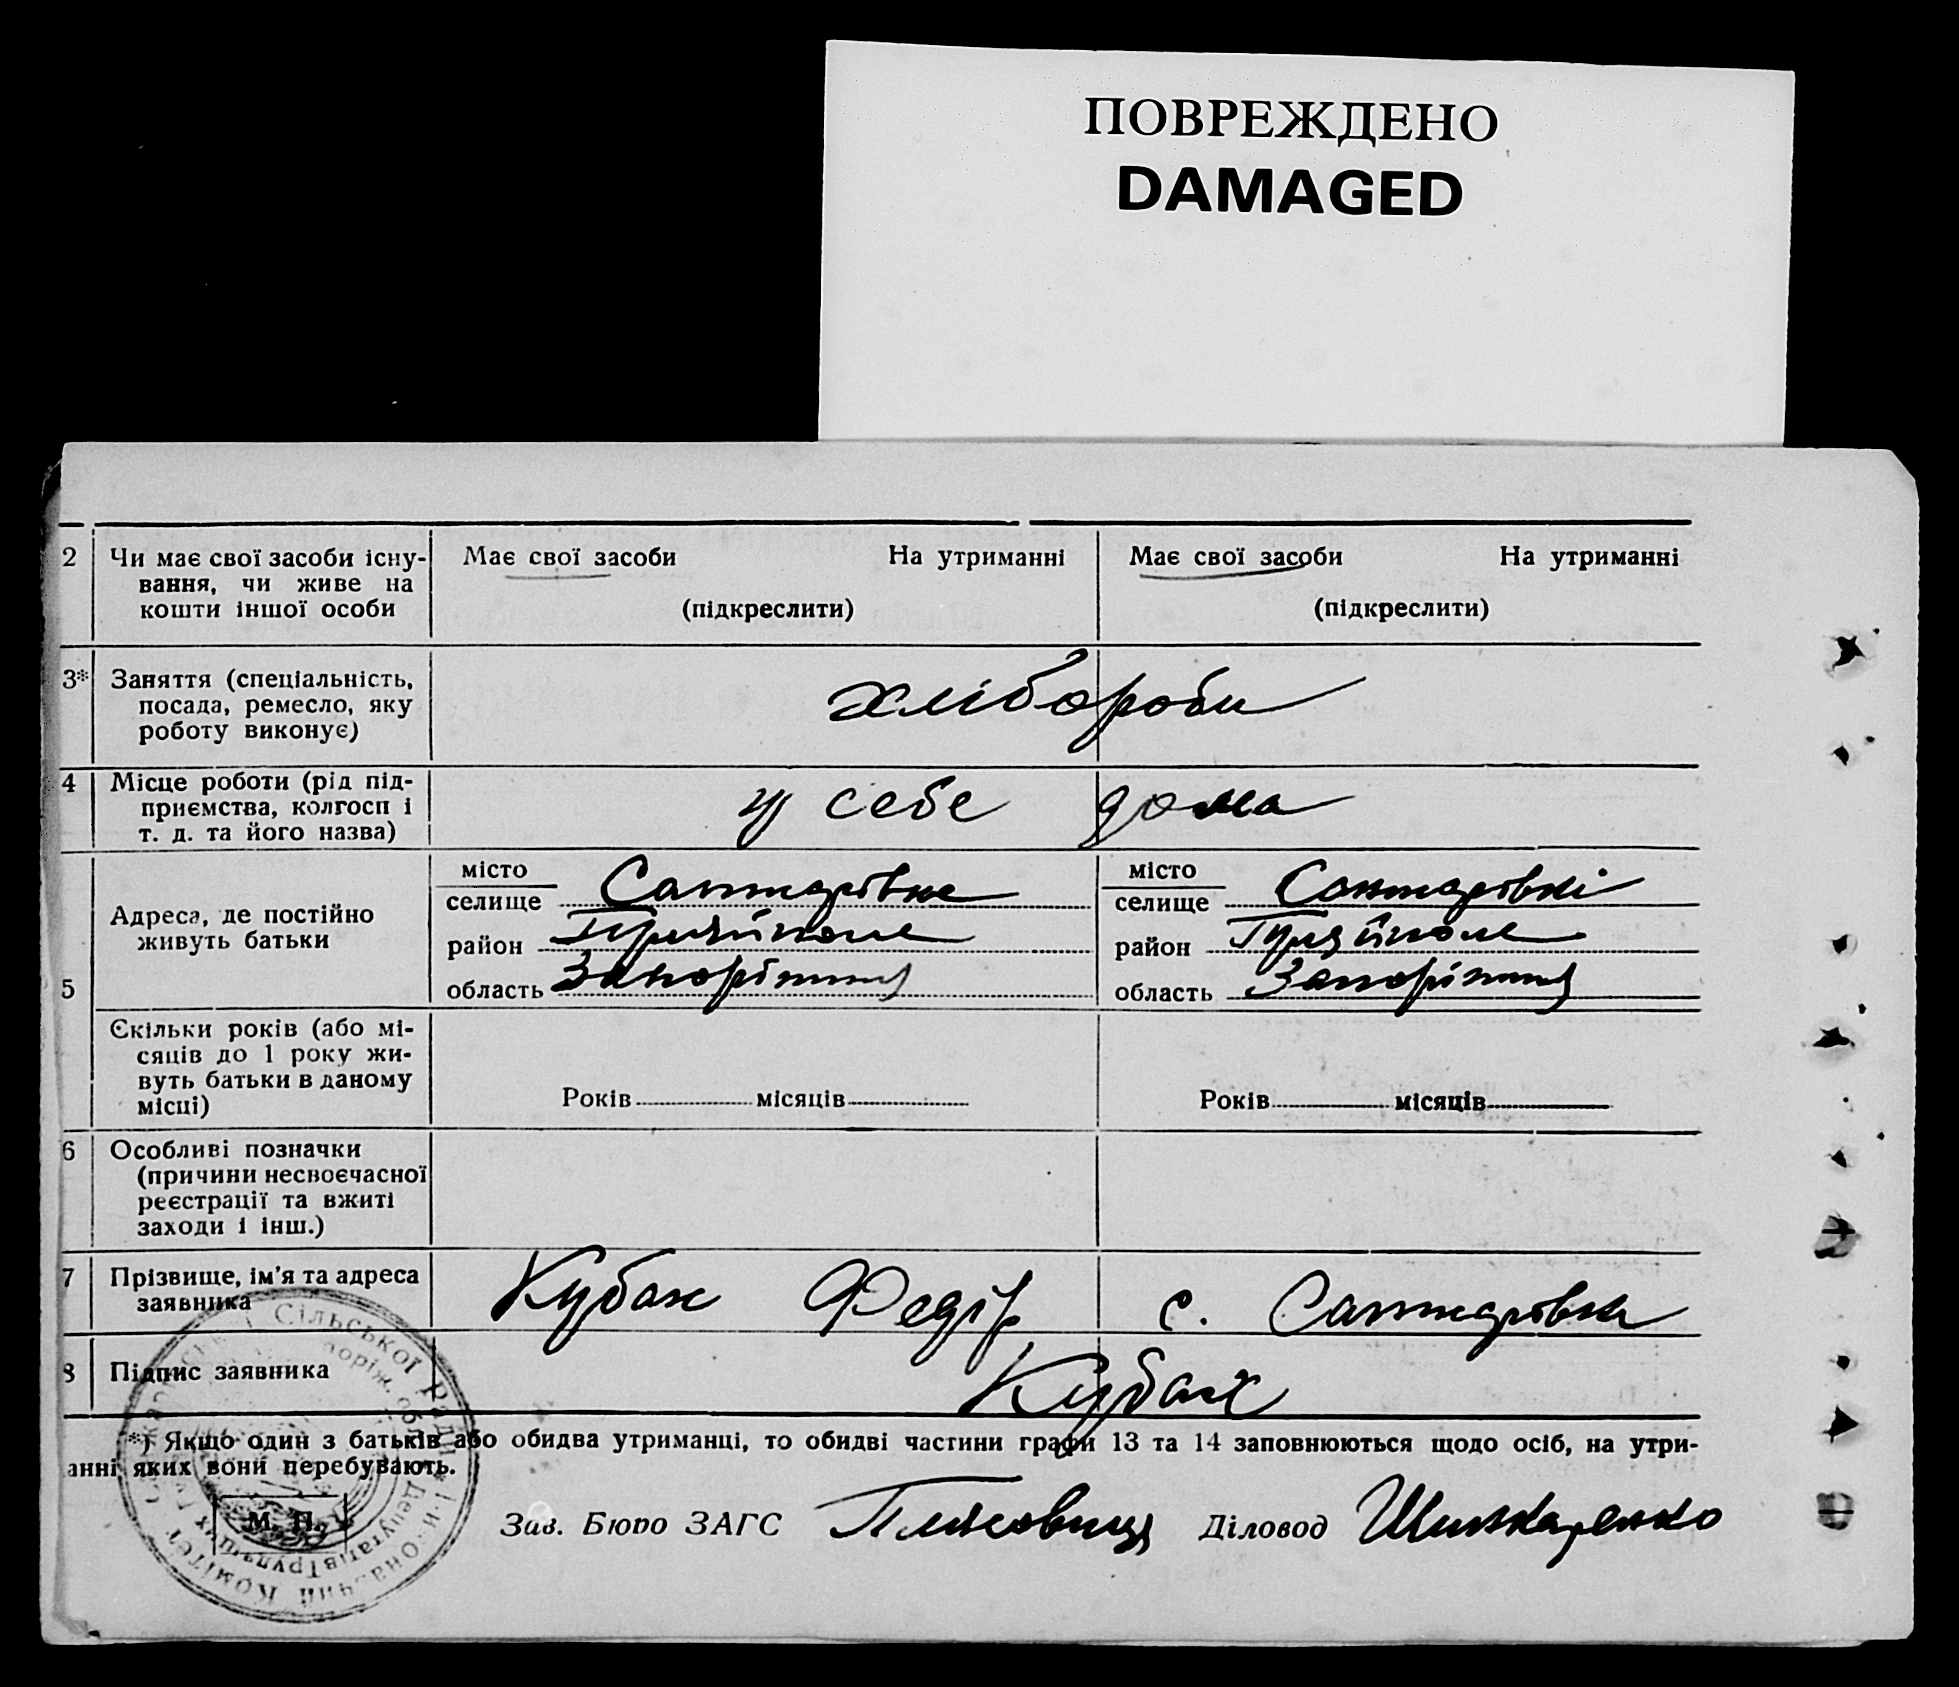 ПОВРЕЖДЕНО
DAMAGED
2 Чи має свої засоби існу- Має свої засоби На утриманні Має свої засоби На утриманні
вання, чи живе на
кошти іншої особи (підкреслити) (підкреслити)
3* Заняття (спеціальність,
посада, ремесло, яку хлібороби
роботу виконує)
4 Місце роботи (рід під-
приємства, колгосп і у себе дома
т. д. та його назва)
місто місто
селище селище
Адреса, де постійно
живуть батьки район Гуляйполе район Гуляйполе
5 область Запоріжжя область Запоріжжя
Скільки років (або мі-
сяців до 1 року жи-
вуть батьки в даному
місці) Років місяців Років місяців
6 Особливі позначки
(причини несвоєчасної
реєстрації та вжиті
заходи і інш.)
7 Прізвище, ім'я та адреса Федір с.
заявника
8 Підпис заявника
*) Якщо один з батьків або обидва утриманці, то обидві частини графи 13 та 14 заповнюються щодо осіб, на утри-
анні яких вони перебувають.
М. П. Зав. Бюро ЗАГС Діловод Шинкаренко
Сільської Ради
Депутатів
Комітет